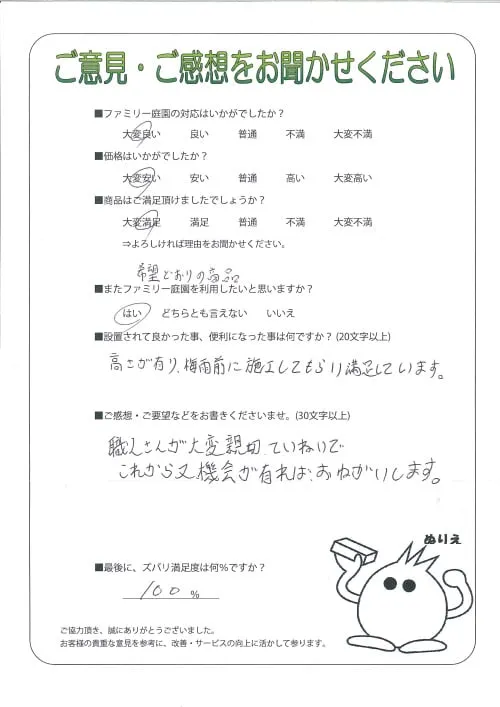 ご意見・ご感想をお聞かせください
■ファミリー庭園の対応はいかがでしたか？
大変良い 良い 普通 不満 大変不満
■価格はいかがでしたか？
大変安い 安い 普通 高い 大変高い
■商品はご満足頂けましたでしょうか？
大変満足 満足 普通 不満 大変不満
⇒よろしければ理由をお聞かせください。
希望どおりの商品
■またファミリー庭園を利用したいと思いますか？
はい どちらとも言えない いいえ
■設置されて良かった事、便利になった事は何ですか？(20文字以上)
高さが有り、梅雨前に施工してもらり満足しています。
■ご感想・ご要望などをお書きくださいませ。(30文字以上)
職人さんが大変親切、ていねいで
これから又機会が有れば、おねがいします。
ぬりえ
■最後に、ズバリ満足度は何%ですか？
100 %
ご協力頂き、誠にありがとうございました。
お客様の貴重な意見を参考に、改善・サービスの向上に活かして参ります。